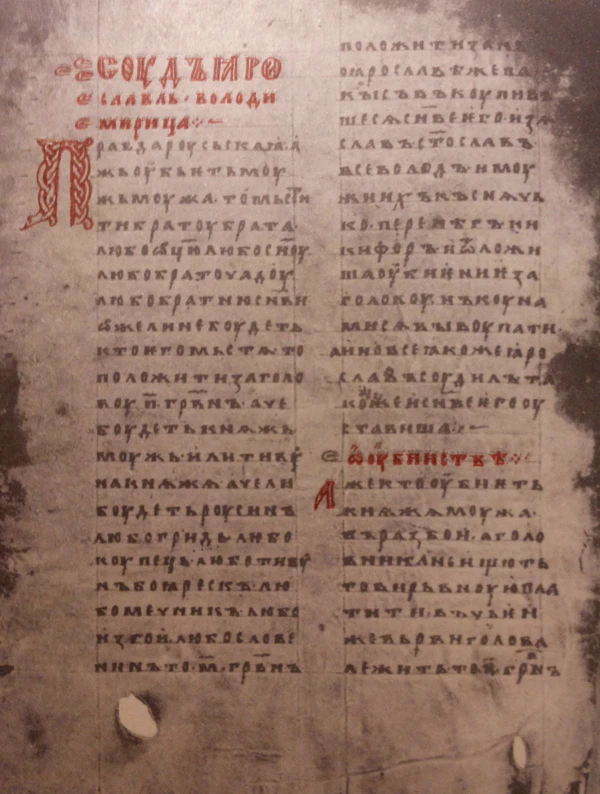 СОУДЪ ꙖРО
СЛАВЛЬ · ВОЛОДИ
МИРИЦА :~
Правда роусьскаꙗ · а
жь оубьѥть моу
жь моужа · то мьсти
ти братоу брата ·
любо ѿцю любо сн҃оу ·
любо братоучадоу
любо братню сн҃ви
ѡже ли не боудеть
кто ѥго мьстѧ то
положити за голо
воу · п҃ · грв҃нъ · аче
боудеть кнѧжь
моужь · или тивоу
на кнѧжѧ · аче ли
боудеть роусинъ
любо гридь · любо
коупець · любо тивоу
нъ боꙗрескъ · лю
бо мечникъ · любо
изгои · любо слове
нинъ то · м҃ · грв҃нъ
положити за нь
о ꙗрославѣ же па
кы съвъкоупивъ
шесѧ сн҃ве ѥго изѧ
славъ ст҃ославъ
всеволодъ и моу
жи ихъ къснѧчь
ко · перенѣгъ ни
кифоръ и ѿложи
ша оубиѥниѥ за
головоу · нъ коуна
ми сѧ выкоупати
ино все ꙗкоже ꙗро
славъ соудилъ та
коже и сн҃ве ѥго оу
ставиша :~
ѡ оубииствѣ :~
Аже кто оубиѥть
кнѧжѧ моужа ·
въ разбои · а голо
вника не ищють
то вирьвноую пла
тити · въ чьѥи
же вьрви голова
лежить то п҃ · грв҃нъ